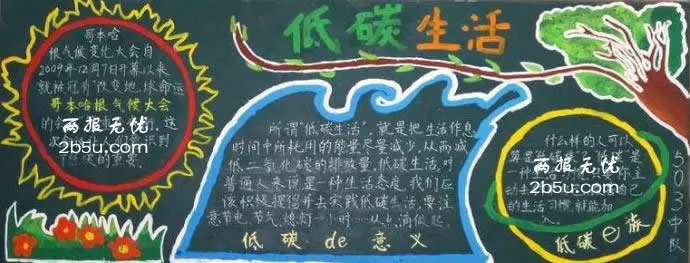 低碳生活
哥本哈
根气候变化大会自
2009年12月7日开幕以来
就被冠有"改变地球命运
哥本哈根气候大会
两报无优
2b5u.com
所谓"低碳生活",就是把生活作息
时间中所耗用的能量尽量减少,从而减
低二氧化碳的排放量,低碳生活,对
普通人来说是一种生活态度,我们应
该积极提倡并去实践低碳生活,要注
意节电、节气、熄灯一小时……从点滴做起。
低碳de意义
什么样的人可以
两报无优
2b5u.com
的生活习惯,就能加
入。
低碳e族
503中队